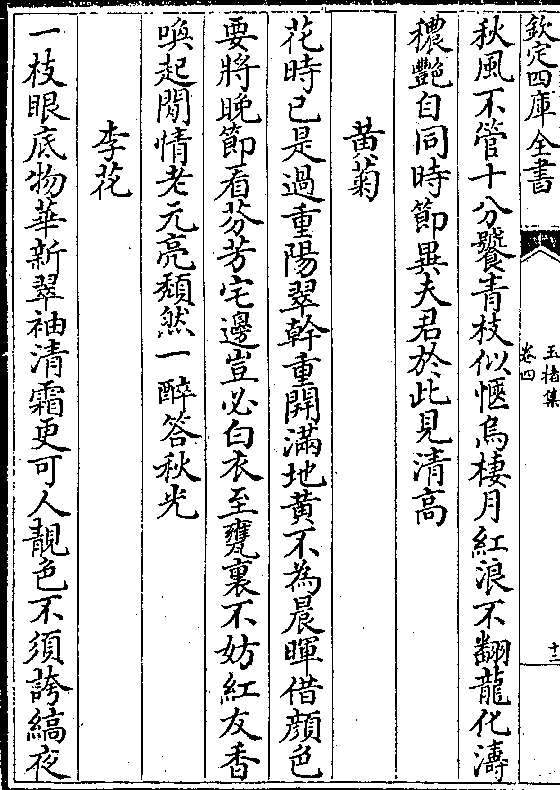 欽定四庫全書
玉楮集
卷四
十三
秋風不管十分饕青枝似愜烏棲月紅浪不翻龍化濤
穠艷自同時節異夫君於此見清高
黄菊
花時已是過重陽翠幹重開滿地黄不為晨暉借顔色
要將晚節看芬芳宅邊豈必白衣至甕裏不妨紅友香
喚起閒情老元亮頽然一醉答秋光
李花
一枝眼底物華新翠袖清霜更可人靚色不須誇縞夜